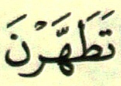 تَطَهَّرْنَ